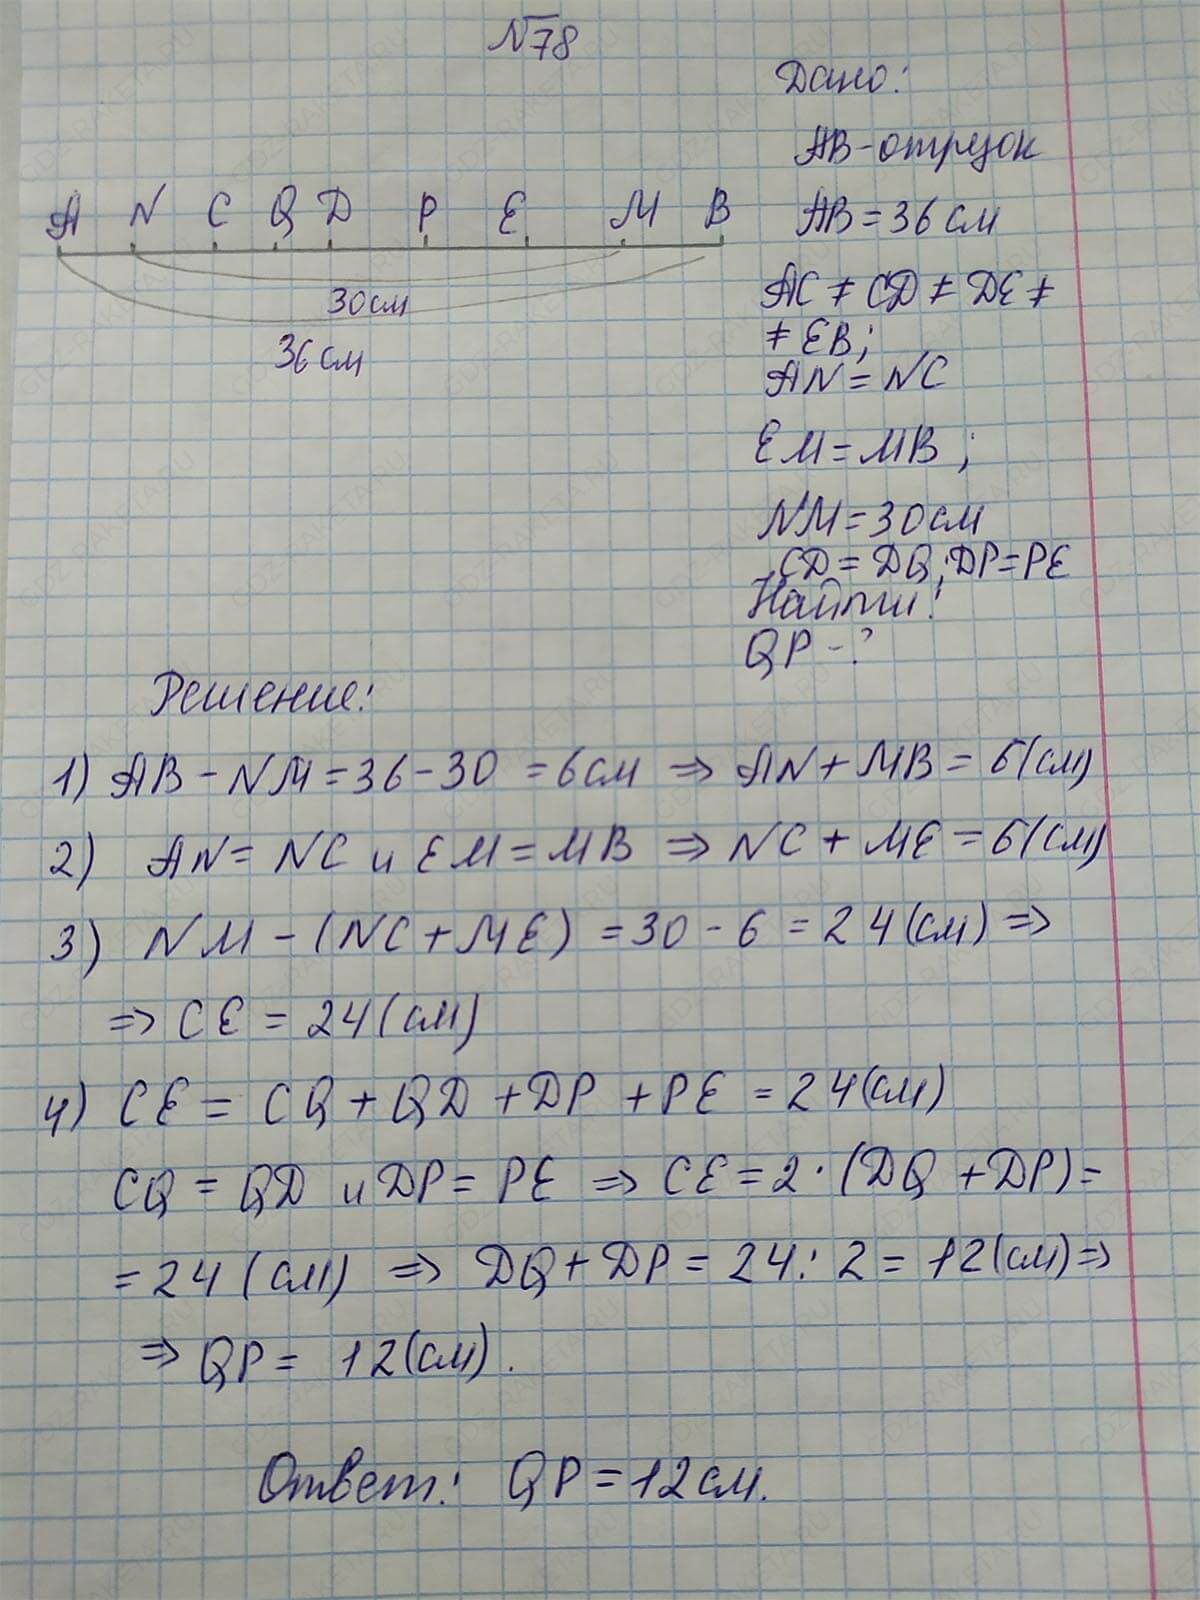 №78
Дано:
AB - отрезок
A N C Q D P E M B
AB = 36 см
30 см
36 см
AC ≠ CD ≠ DE ≠
≠ EB;
AN = NC
EM = MB ;
NM = 30 см
CD = DQ; DP = PE
Найти:
QP - ?
Решение:
1) AB - NM = 36 - 30 = 6 см ⇒ AN + MB = 6 (см)
2) AN = NC и EM = MB ⇒ NC + ME = 6 (см)
3) NM - (NC + ME) = 30 - 6 = 24 (см) ⇒
⇒ CE = 24 (см)
4) CE = CQ + QD + DP + PE = 24 (см)
CQ = QD и DP = PE ⇒ CE = 2 · (DQ + DP) =
= 24 (см) ⇒ DQ + DP = 24 : 2 = 12 (см) ⇒
⇒ QP = 12 (см).
Ответ: QP = 12 см.